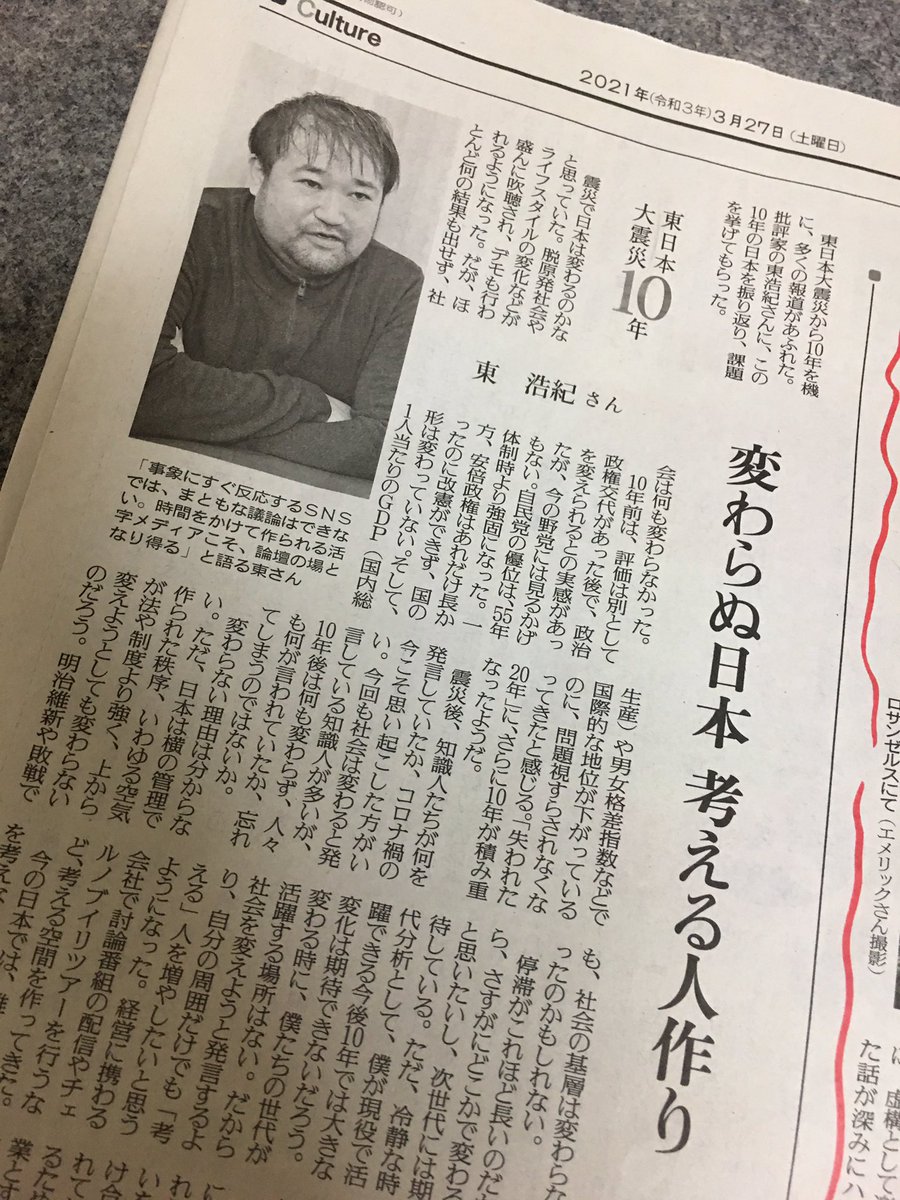 Culture
2021年(令和3年)3月27日(土曜日)
変わらぬ日本 考える人作り
東日本大震災から10年を機
に、多くの報道があふれた。
批評家の東浩紀さんに、この
10年の日本を振り返り、課題
を挙げてもらった。
東日本
大震災
10年
東 浩紀さん
震災で日本は変わるのかな
と思っていた。脱原発社会や
ライフスタイルの変化などが
盛んに吹聴され、デモも行わ
れるようになった。だが、ほ
とんど何の結果も出せず、社
会は何も変わらなかった。
10年前は、評価は別として
政権交代があった後で、政治
を変えられるとの実感があっ
たが、今の野党には見るかげ
もない。自民党の優位は、55年
体制時より強固になった。一
方、安倍政権はあれだけ長か
ったのに改憲ができず、国の
形は変わっていない。そして、
1人当たりのGDP(国内総
生産)や男女格差指数などで
国際的な地位が下がっている
のに、問題視すらされなくな
ってきたと感じる。「失われた
20年」に、さらに10年が積み重
なったようだ。
震災後、知識人たちが何を
発言していたか、コロナ禍の
今こそ思い起こした方がい
い。今回も社会は変わると発
言している知識人が多いが、
10年後は何も変わらず、人々
も何が言われていたか、忘れ
てしまうのではないか。
変わらない理由は分からな
い。ただ、日本は横の管理で
作られた秩序、いわゆる空気
が法や制度より強く、上から
変えようとしても変わらない
のだろう。明治維新や敗戦で
も、社会の基層は変わらな
ったのかもしれない。
停滞がこれほど長いのだか
ら、さすがにどこかで変わる
と思いたいし、次世代には期
待している。ただ、冷静な時
代分析として、僕が現役で活
躍できる今後10年では大きな
変化は期待できないだろう。
変わる時に、僕たちの世代が
活躍する場所はない。だから
社会を変えようと発言するよ
り、自分の周囲だけでも「考
える」人を増やしたいと思う
ようになった。経営に携わる
会社で討論番組の配信やチェ
ルノブイリツアーを行うな
ど、考える空間を作ってきた。
今の日本では、
を考え
「事象にすぐ反応するSNS
では、まともな議論はできな
い。時間をかけて作られる活
字メディアこそ、論壇の場と
なり得る」と語る東さん
ロサンゼルスにて(エメリックさん撮影)
に、虚構として
た話が深みにハ